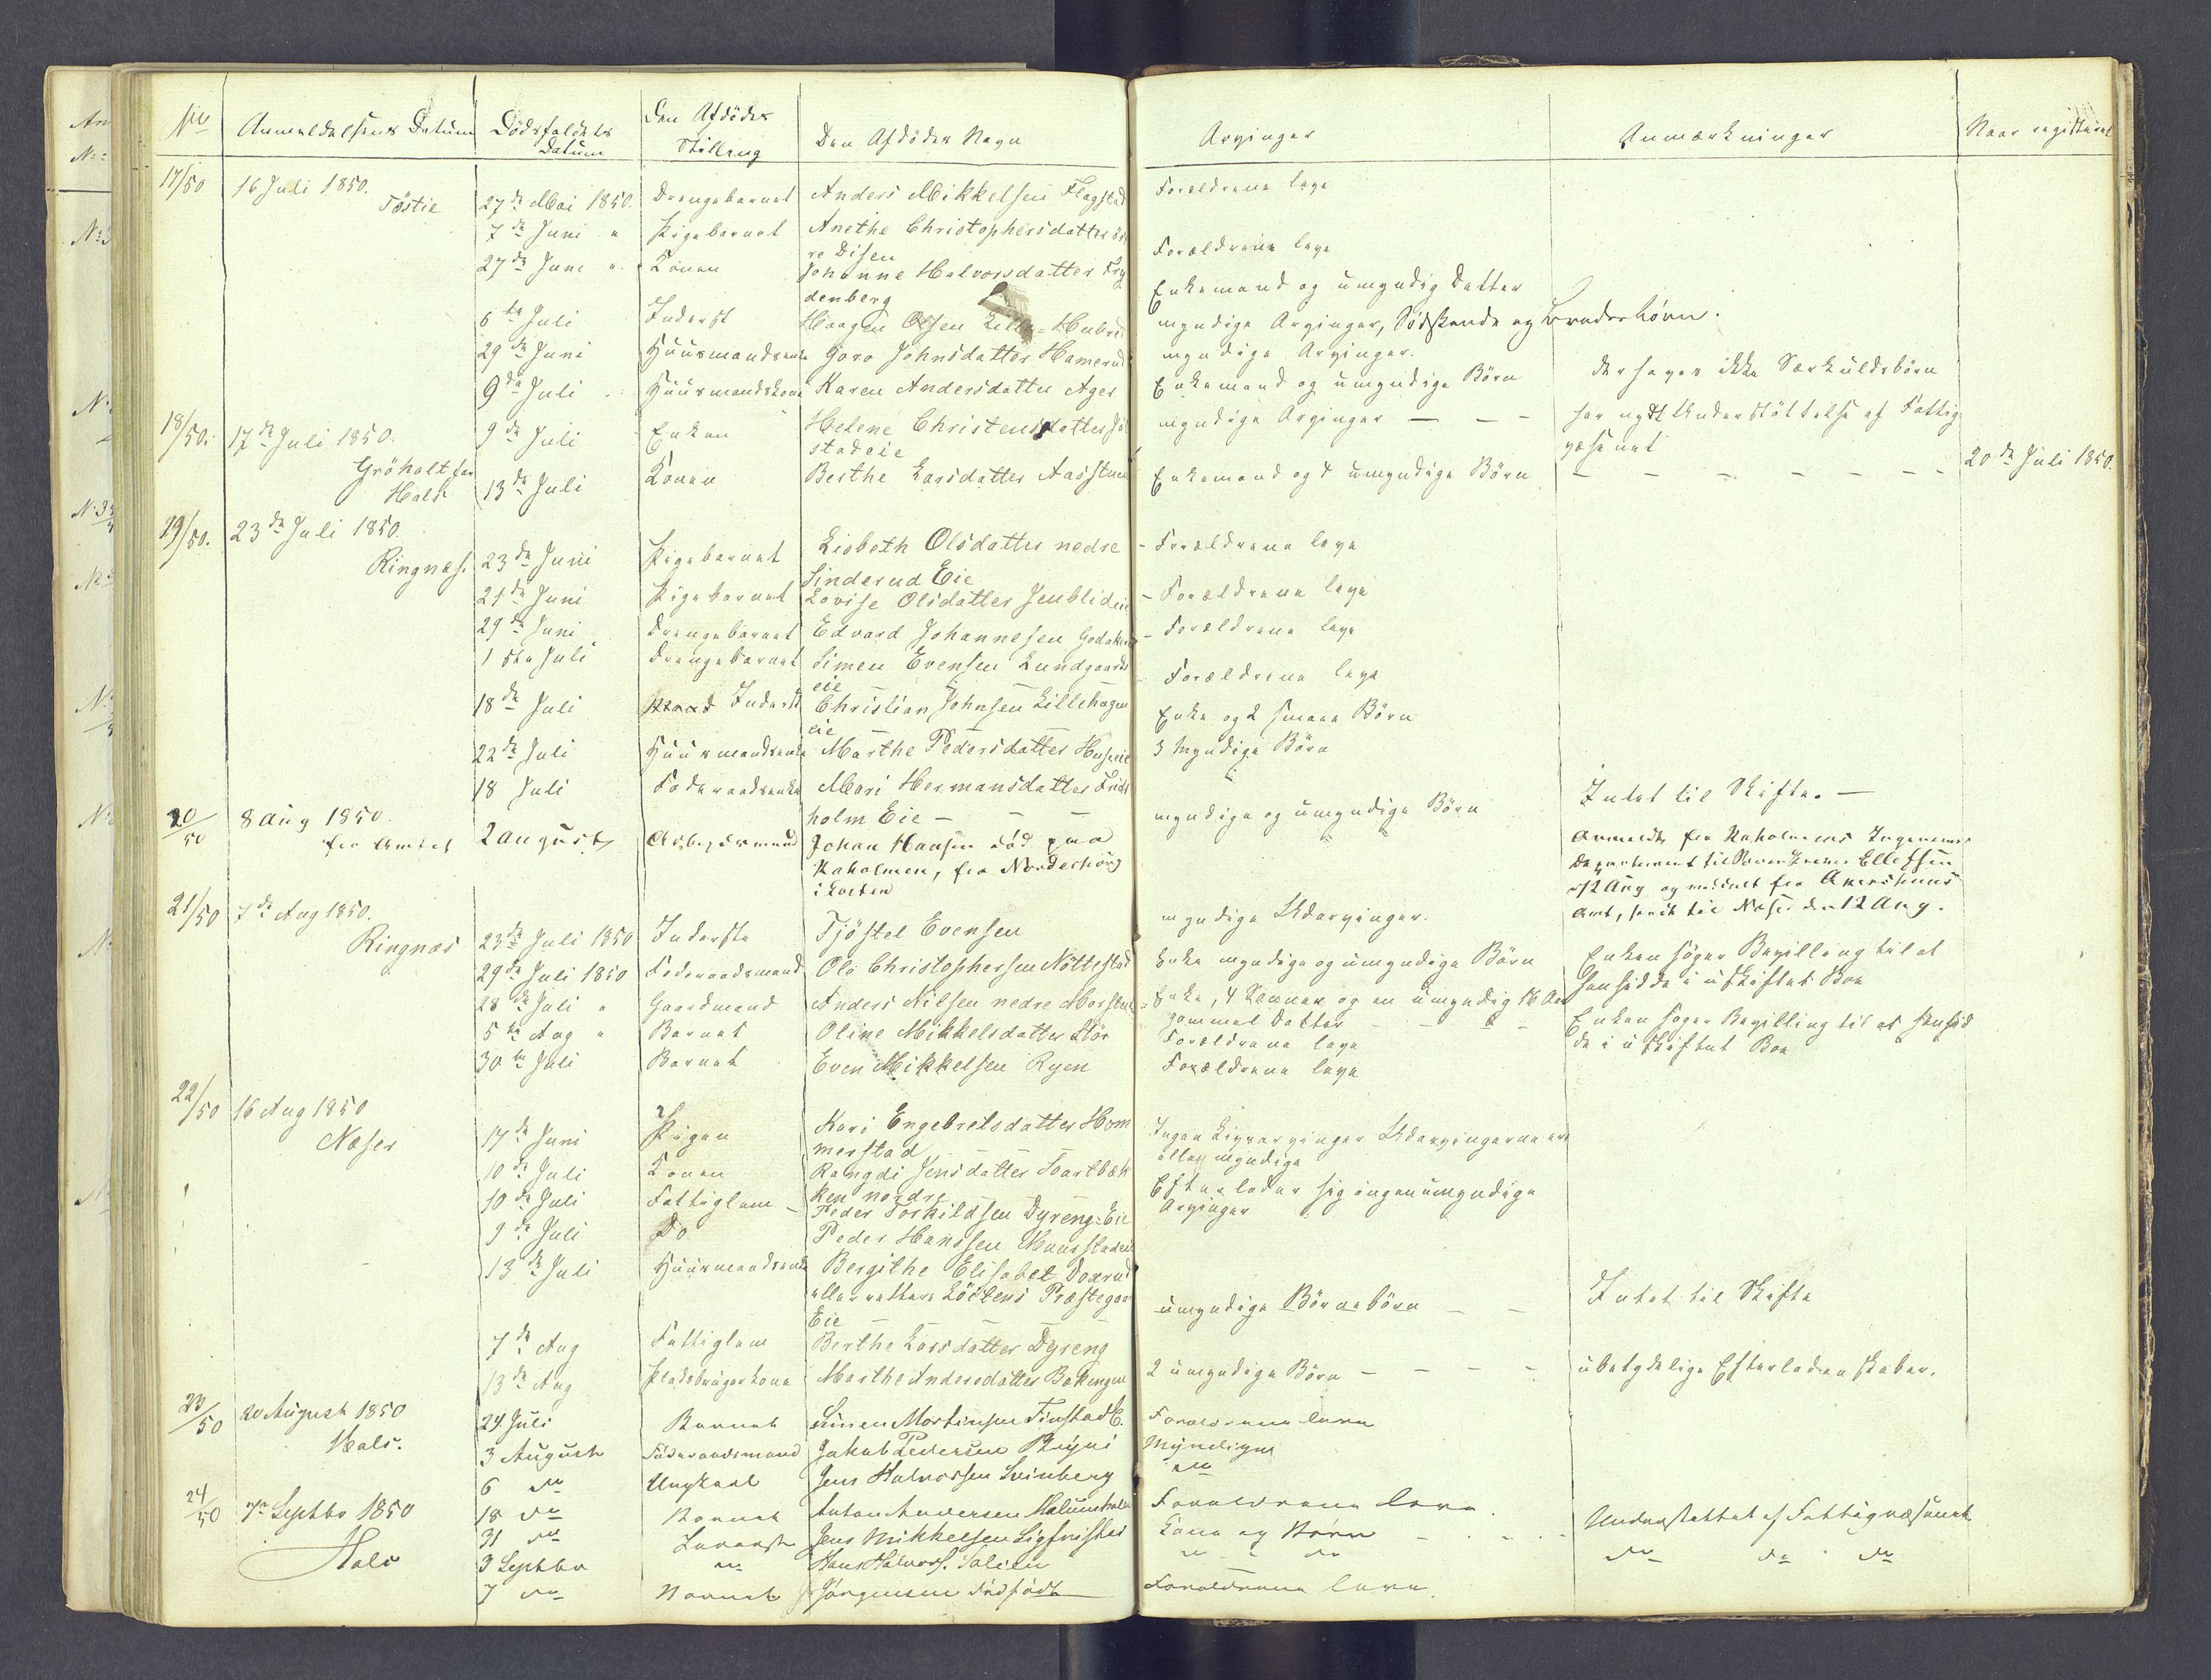 No Anmeldelsens Datum Dödsfaldets Datum Den Afdödes Stilling Den Afdödes Navn Arvinger Anmærkninger Naar registreret
17/50 16 Juli 1850.
Töstie 27de Mai 1850. Drengebarnet Anders Mikkelsen Flagstad Forældrene leve
7de Juni " Pigebarnet Anethe Christophersdatter
re Disen Forældrene leve
27de Juni " Konen Johanne Halvorsdatter Fry
denberg Enkemand og umyndig Datter
6te Juli Inderst Haagen Olsen Lille-Hubred myndige Arvinger, Södskende og Broderbörn.
29de Juni Huusmandsenke Goro Johnsdatter Hamerud myndige Arvinger.
9de Juli Huusmandskone Karen Andersdatter Ager Enkemand og umyndige Börn der haves ikke Særkuldsbörn
18/50. 17de Juli 1850. 9de Juli Enken Helene Christensdatter
stadeie myndige Arvinger — — har nydt Understöttelse af Fattig
væsenet
Gröholt for
Hals 13de Juli Konen Berthe Larsdatter Aasstuen Enkemand og 4 umyndige Börn — — — — — 20de Juli 1850.
19/50. 23de Juli 1850.
Ringnæs. 23de Juni Pigebarnet Lisbeth Olsdatter nedre
Sinderud Eie - Forældrene leve
21de Juni Pigebarnet Lovise Olsdatter Jenblideie - Forældrene leve
29de Juni Drengebarnet Edvard Johannesen Godaker - Forældrene leve
1ste Juli Drengebarnet Simen Evensen Lundgaards
eie — Forældrene leve
18de Juli Inderst Christian Johnsen Lillehagen
eie — Enke og 2 smaae Börn
22de Juli Huusmandsenke Marthe Pedersdatter Huseeie 3 myndige Börn
18 Juli Föderaadsenke Mari Hermansdatter Frids
holm Eie — — myndige og umyndige Börn Intet til Skifte. —
20/50 8 Aug 1850.
fra Amtet 2 August Arbejdsmand Johan Hansen död paa
Kaholmen, fra Norderhoug
i Löiten Anmeldt fra Kaholmens Ingenieur
Departement til Ellefsen
12 Aug og meddelt fra Akershuus
Amt, sendt til Næser den 12 Aug.
21/50 7de Aug 1850.
Ringnæs 23de Juli 1850 Inderste Tjöstel Evensen myndige Udarvinger.
29de Juli 1850 Föderaadsmand Ole Christophersen Nöttestad Enke myndige og umyndige Börn Enken söger Bevilling til at
hensidde i uskiftet Boe
28de Juli " Gaardmand Anders Nilsen nedre Morstue Enke, 4 Sönner og en umyndig 16 Aar
gammel Datter — — Enken söger Bevilling til at hensid
de i uskiftet Boe
5te Aug " Barnet Oline Mikkelsdatter Stör Forældrene leve
30te Juli Barnet Even Mikkelsen Ryen Forældrene leve
22/50 16 Aug 1850
Næser 17de Juni Pigen Kari Engebretsdatter Hom
merstad Ingen Livsarvinger Udarvingerne ere
alle myndige
10de Juli Konen Rangdi Jensdatter Svartbæk
ken nordre Efterlader sig ingen umyndige
Arvinger
10de Juli Fattiglem — Peder Torkildsen Dyreng-Eie
9de Juli Do Peder Hanssen Maurstadeie
13de Juli Huusmandsenke Bergithe Elisabet Doxrud
eller rettere Löitens Præstegaar
Eie — umyndige Börnebörn — — Intet til Skifte
7de Aug Fattiglem Berthe Larsdatter Dyreng
13de Aug Pladsbrugerkone Marthe Andersdatter Bakengen 2 umyndige Börn — — — ubetydelige Efterladenskaber.
23/50 20 August 1850
Hals. 24 Juli Barnet Simen Mortinsen Finstad E. Forældrene leve
3 August Föderaadsmand Jakob Pedersen Myndige
6 do Ungkarl Jens Halvorsen Svinberg do
24/50 7de Septbr 1850
Hals 18 do Barnet Anton Andersen Forældrene leve
31 do Inderst Jens Mikkelsen Kone og Börn — — Understøttet af Fattigvæsenet
3 Septbr do Hans Halvors. Salien do " do do do do
7 do Barnet Jörgensen dödfödt Forældrene leve.